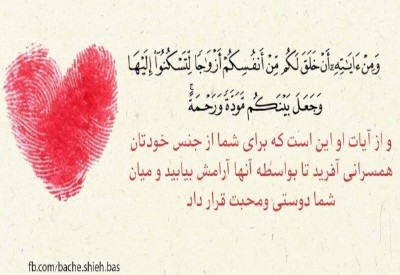 وَمِنْ ءَايَـٰتِهِۦٓ أَنْ خَلَقَ لَكُم مِّنْ أَنفُسِكُمْ أَزْوَٰجًا لِّتَسْكُنُوٓا۟ إِلَيْهَا
وَجَعَلَ بَيْنَكُم مَّوَدَّةً وَرَحْمَةً ۚ
و از آیات او این است که برای شما از جنس خودتان
همسرانی آفرید تا بواسطه آنها آرامش بیابید و میان
شما دوستی ومحبت قرار داد
fb.com/bache.shieh.bas